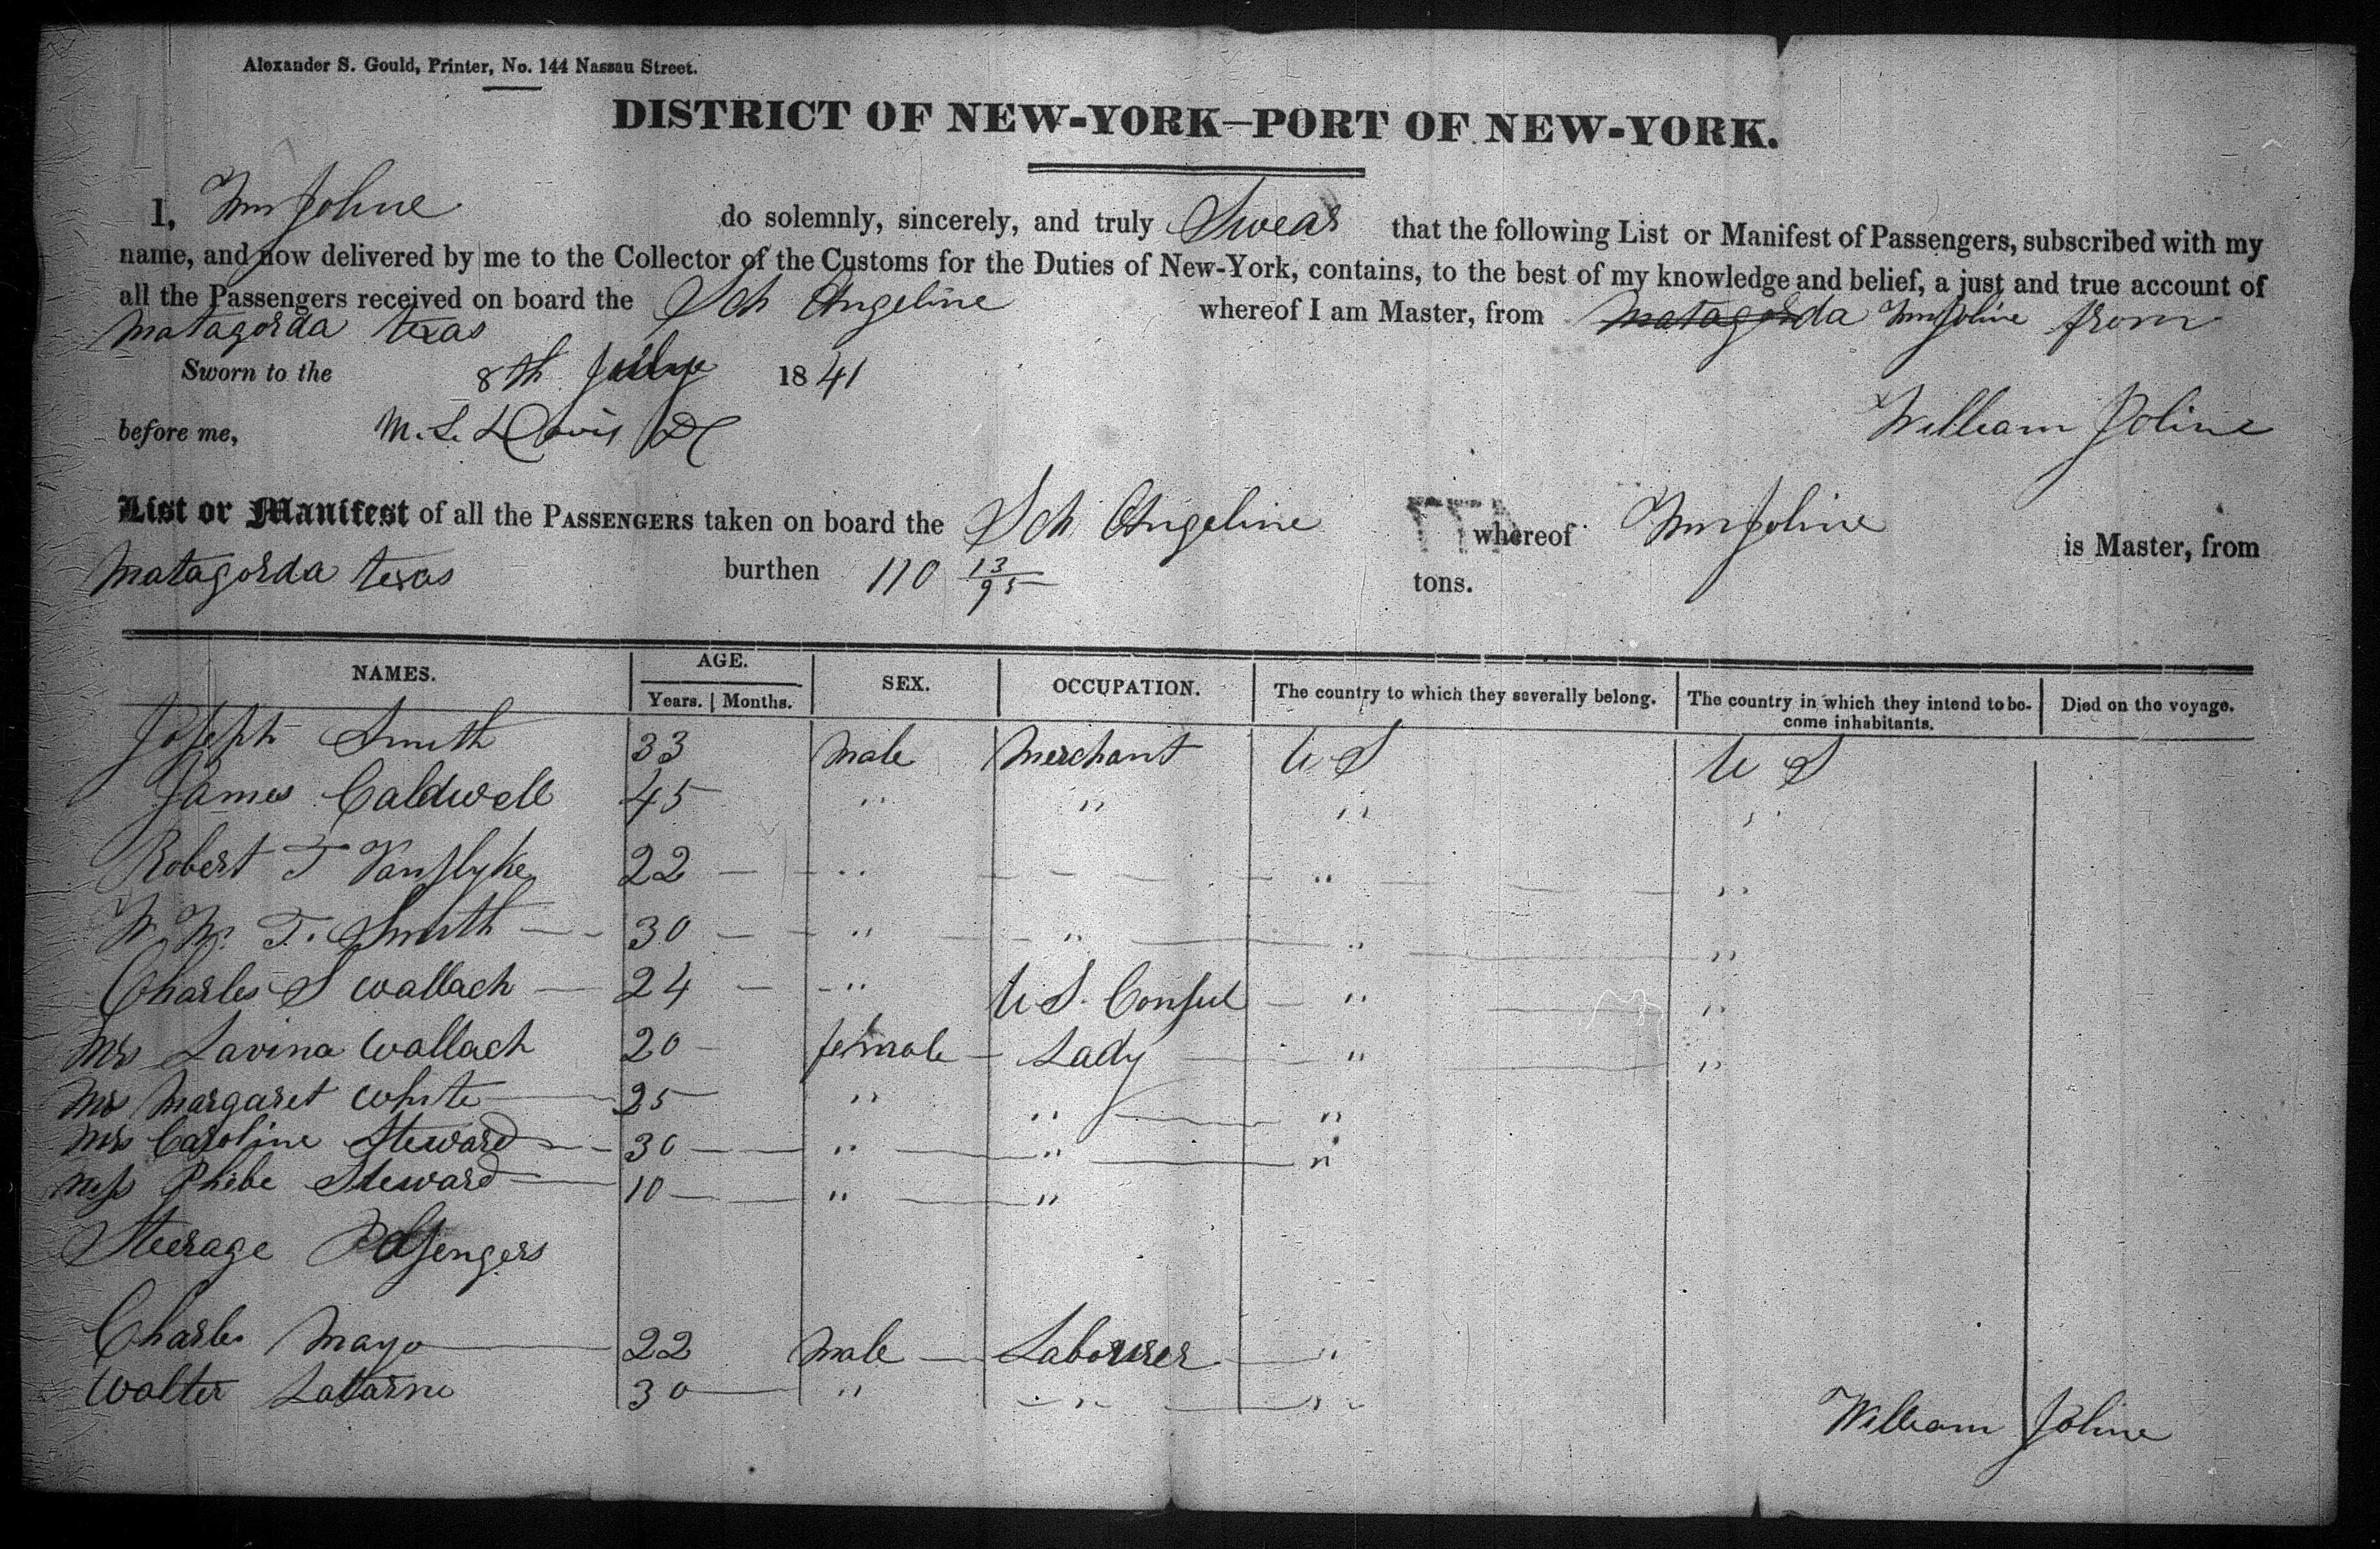 Alexander S. Gould, Printer, No. 144 Nassau Street.
DISTRICT OF NEW-YORK—PORT OF NEW-YORK.
I, Wm Joline do solemnly, sincerely, and truly Swear that the following List or Manifest of Passengers, subscribed with my
name, and now delivered by me to the Collector of the Customs for the Duties of New-York, contains, to the best of my knowledge and belief, a just and true account of
all the Passengers received on board the Sch Angeline whereof I am Master, from Matagorda Wm Joline from
Matagorda texas
Sworn to the 8th 1841
before me, M. L. Davis DC William Joline
List or Manifest of all the PASSENGERS taken on board the Sch Angeline whereof Wm Joline is Master, from
Matagorda texas burthen 110 13/95 tons.
NAMES. AGE. Years. Months. SEX. OCCUPATION. The country to which they severally belong. The country in which they intend to become inhabitants. Died on the voyage.
Joseph Smith 33 male Merchant U S U S
James Caldwell 45 " " " "
Robert T Vanslyke 22 — " — — " — "
W. W. T. Smith — 30 — " — " — " — "
Charles S Wallach — 24 — " U S. Consul — " — "
Mrs Lavina Wallach 20 — female — Lady — " — "
Mrs Margaret White — 25 " " — "
Mrs Caroline Steward — 30 — " — " — "
Miss Phebe Steward — 10 — " — "
Steerage Passengers
Charles Mayo — 22 male — Labourer — "
Walter 30 — " — " — "
William Joline